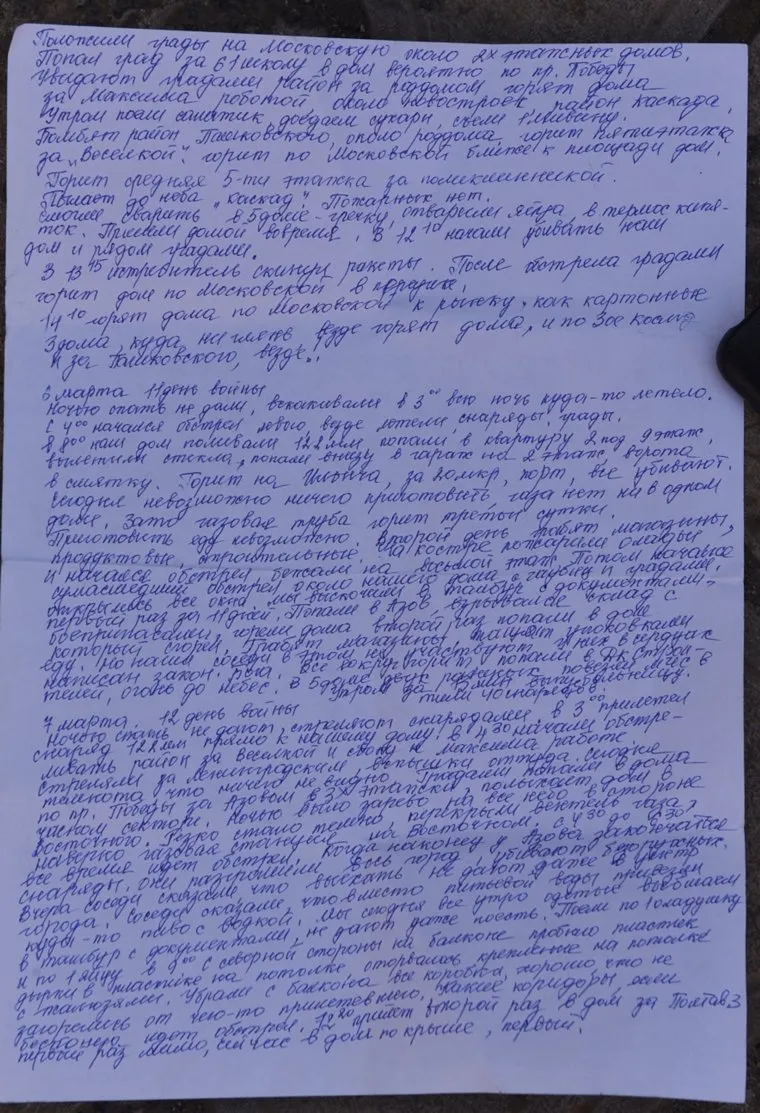 Положили грады на Московскую около 2х этажных домов.
Попал град за 61 школу в дом вероятно по пр. Победы
Увидают градами район за роддомом горят дома
за Максима работой около новостроек район каскада.
Утром поели салатик, доедаем сухари, съели 1 мивину.
Долбят район Пашковского, около роддома, горит пятиэтажка
за "Веселкой". горит по Московской ближе к площади дом.
Горит средняя 5-ти этажка за поликлинникой.
Пылает до неба "каскад". Пожарных нет.
смогли сварить в 5 доме - гречку, отварили яйца, в термос кипя-
ток. Пришли домой вовремя. В 12 10 начали убивать наш
дом и рядом градами.
В 13 15 истребитель скинул ракеты. После обстрела градами
горит дом по Московской в
14 10 горят дома по Московской к рынку. как картонные
3 дома, куда не глянь везде горят дома, и по 30е
и за Пашковского, везде.
6 марта 11 день войны
Ночью спать не дали, вскакивали в 3 00 всю ночь куда-то летело.
С 4 00 начался обстрел левого, везде летели снаряды. грады.
В 8 00 наш дом поливали 122 мм попали в квартиру 2 под 9 этаж,
вылетили стекла, попали внизу в гараж на 2 этаж, ворота
в смятку. Горит на Ильича, за 20 мкр, порт, все убивают.
Сегодня невозможно ничего приготовить газа нет ни в одном
доме. Зато газовая труба горит третьи сутки.
Приготовить еду невозможно. Второй день грабят магазины,
продуктовые, строительные. На костре пожарили оладьи
и начался обстрел бежали на восьмой этаж Потом начался
сумасшедший обстрел около нашего дома с гаубиц и градами,
открылись все окна. мы выскочили в тамбур с документами,
первый раз за 11 дней. Попали в Азов, взрывался склад с
боеприпасами, горели дома второй раз попали в дом
который сгорел. Грабят магазины, тащут упаковками
еду. Но наши соседи в этом не участвуют у них в сердцах
написан закон. Бога. Все вокруг горит попали в Дк Строи-
телей, огонь до небес. В 5 доме двух раненых повезли мчс в
больницу.
Утром за мин. выпустили 40 снарядов.
7 марта. 12 день войны
Ночью спать не дают, стреляют снарядами. в 3 00 прилетел
снаряд 122 мм прямо к нашему дому. в 4 30 начали обстре-
ливать район за веселкой и снова к Максима работе.
стреляли за Ленинградским, вспышки оттуда. сегодня
темнота что ничего не видно. Градами попали в дома
по пр. Победы за Азовом в 3х этажки, полыхает дом в
часном секторе. Ночью было зарево на все небо в стороне
Восточного. Резко стало темно, перекрыли вентель газа,
наверно газовая станция на Восточном. с 4 30 до 6 30,
все время идет обстрел. Когда наконец у Азова закончаться
снаряды, они разгромили весь город, убивают безоружных.
Вчера соседи сказали, что выехать не дают даже в центр
города. Соседи сказали, что вместо питьевой воды привезли
куды-то пиво с водкой. Мы сегодня все утро одетые выбегаем
в тамбур с документами, не дают даже поесть. Поели по 1 оладушку
и по 1 яйцу в 9 00 с северной стороны на балконе пробило пластик
дырки в пластике на потолке оторвалось крепление на потолке
с жалюзями. Убрали с балкона все коробки, хорошо что не
загорелись от чего-то прилетевшего. коридоры, если
идет обстрел. 12 20 прилет второй раз в дом за Полтав 3
первый раз мимо, сейчас в дом по крыше, первый.